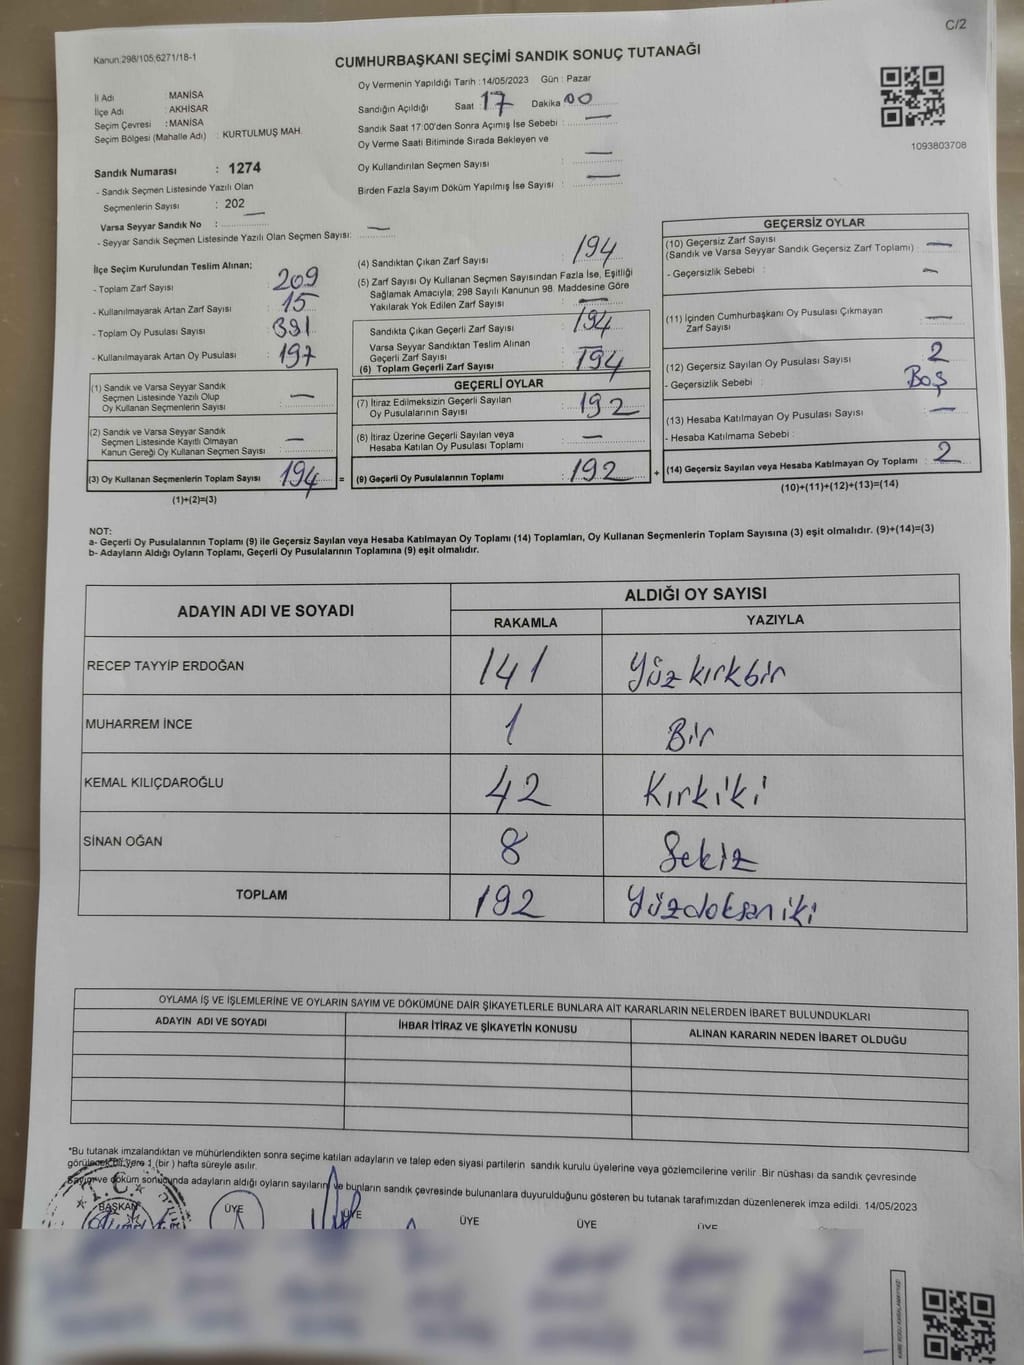 C/2
Kanun.298/105,6271/18-1
CUMHURBAŞKANI SEÇİMİ SANDIK SONUÇ TUTANAĞI
1093803708
İl Adı : MANİSA
İlçe Adı : AKHİSAR
Seçim Çevresi : MANİSA
Seçim Bölgesi (Mahalle Adı) : KURTULMUŞ MAH.
Sandık Numarası : 1274
- Sandık Seçmen Listesinde Yazılı Olan
Seçmenlerin Sayısı : 202
Varsa Seyyar Sandık No : —
- Seyyar Sandık Seçmen Listesinde Yazılı Olan Seçmen Sayısı: —
Oy Vermenin Yapıldığı Tarih : 14/05/2023 Gün : Pazar
Sandığın Açıldığı Saat : 17 Dakika 00
Sandık Saat 17:00'den Sonra Açımış İse Sebebi : —
Oy Verme Saati Bitiminde Sırada Bekleyen ve
Oy Kullandırılan Seçmen Sayısı : —
Birden Fazla Sayım Döküm Yapılmış İse Sayısı : —
İlçe Seçim Kurulundan Teslim Alınan;
- Toplam Zarf Sayısı : 209
- Kullanılmayarak Artan Zarf Sayısı : 15
- Toplam Oy Pusulası Sayısı : 391
- Kullanılmayarak Artan Oy Pusulası : 197
(1) Sandık ve Varsa Seyyar Sandık
Seçmen Listesinde Yazılı Olup
Oy Kullanan Seçmenlerin Sayısı : —
(2) Sandık ve Varsa Seyyar Sandık
Seçmen Listesinde Kayıtlı Olmayan
Kanun Gereği Oy Kullanan Seçmen Sayısı : —
(3) Oy Kullanan Seçmenlerin Toplam Sayısı : 194
(1)+(2)=(3)
(4) Sandıktan Çıkan Zarf Sayısı : 194
(5) Zarf Sayısı Oy Kullanan Seçmen Sayısından Fazla İse, Eşitliği
Sağlamak Amacıyla; 298 Sayılı Kanunun 98. Maddesine Göre
Yakılarak Yok Edilen Zarf Sayısı : —
Sandıkta Çıkan Geçerli Zarf Sayısı : 194
Varsa Seyyar Sandıktan Teslim Alınan
Geçerli Zarf Sayısı : —
(6) Toplam Geçerli Zarf Sayısı : 194
GEÇERLİ OYLAR
(7) İtiraz Edilmeksizin Geçerli Sayılan
Oy Pusulalarının Sayısı : 192
(8) İtiraz Üzerine Geçerli Sayılan veya
Hesaba Katılan Oy Pusulası Toplamı : —
= (9) Geçerli Oy Pusulalarının Toplamı : 192 +
GEÇERSİZ OYLAR
(10) Geçersiz Zarf Sayısı : —
(Sandık ve Varsa Seyyar Sandık Geçersiz Zarf Toplamı)
- Geçersizlik Sebebi : —
(11) İçinden Cumhurbaşkanı Oy Pusulası Çıkmayan
Zarf Sayısı : —
(12) Geçersiz Sayılan Oy Pusulası Sayısı : 2
- Geçersizlik Sebebi : Boş
(13) Hesaba Katılmayan Oy Pusulası Sayısı : —
- Hesaba Katılmama Sebebi :
(14) Geçersiz Sayılan veya Hesaba Katılmayan Oy Toplamı : 2
(10)+(11)+(12)+(13)=(14)
NOT:
a- Geçerli Oy Pusulalarının Toplamı (9) ile Geçersiz Sayılan veya Hesaba Katılmayan Oy Toplamı (14) Toplamları, Oy Kullanan Seçmenlerin Toplam Sayısına (3) eşit olmalıdır. (9)+(14)=(3)
b- Adayların Aldığı Oyların Toplamı, Geçerli Oy Pusulalarının Toplamına (9) eşit olmalıdır.
ADAYIN ADI VE SOYADI ALDIĞI OY SAYISI
RAKAMLA YAZIYLA
RECEP TAYYİP ERDOĞAN 141 Yüz kırkbir
MUHARREM İNCE 1 Bir
KEMAL KILIÇDAROĞLU 42 Kırkiki
SİNAN OĞAN 8 Sekiz
TOPLAM 192 Yüzdoksan iki
OYLAMA İŞ VE İŞLEMLERİNE VE OYLARIN SAYIM VE DÖKÜMÜNE DAİR ŞİKAYETLERLE BUNLARA AİT KARARLARIN NELERDEN İBARET BULUNDUKLARI
ADAYIN ADI VE SOYADI İHBAR İTİRAZ VE ŞİKAYETİN KONUSU ALINAN KARARIN NEDEN İBARET OLDUĞU
*Bu tutanak imzalandıktan ve mühürlendikten sonra seçime katılan adayların ve talep eden siyasi partilerin sandık kurulu üyelerine veya gözlemcilerine verilir. Bir nüshası da sandık çevresinde
görülecek bir yere 1 (bir ) hafta süreyle asılır.
Sayım ve döküm sonucunda adayların aldığı oyların sayıların ve bunların sandık çevresinde bulunanlara duyurulduğunu gösteren bu tutanak tarafımızdan düzenlenerek imza edildi. 14/05/2023
T.C.
BAŞKAN ÜYE ÜYE ÜYE ÜYE ÜYE